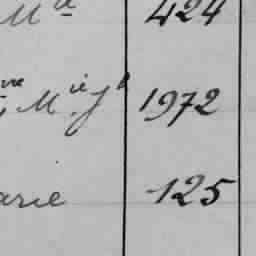 Mᵈᵉ 424
ᵛᵉ, Mⁱᵉ Jʰ 1972
arie 125